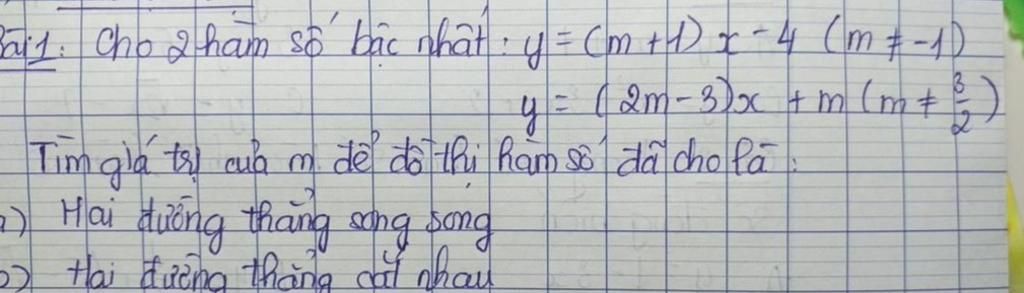 Bài 1: Cho 2 hàm số bậc nhất: y = (m + 1) x - 4 (m ≠ -1)
y = (2m - 3)x + m (m ≠ 3/2)
Tìm giá trị của m để đồ thị hàm số đã cho là:
a) Hai đường thẳng song song
b) Hai đường thẳng cắt nhau